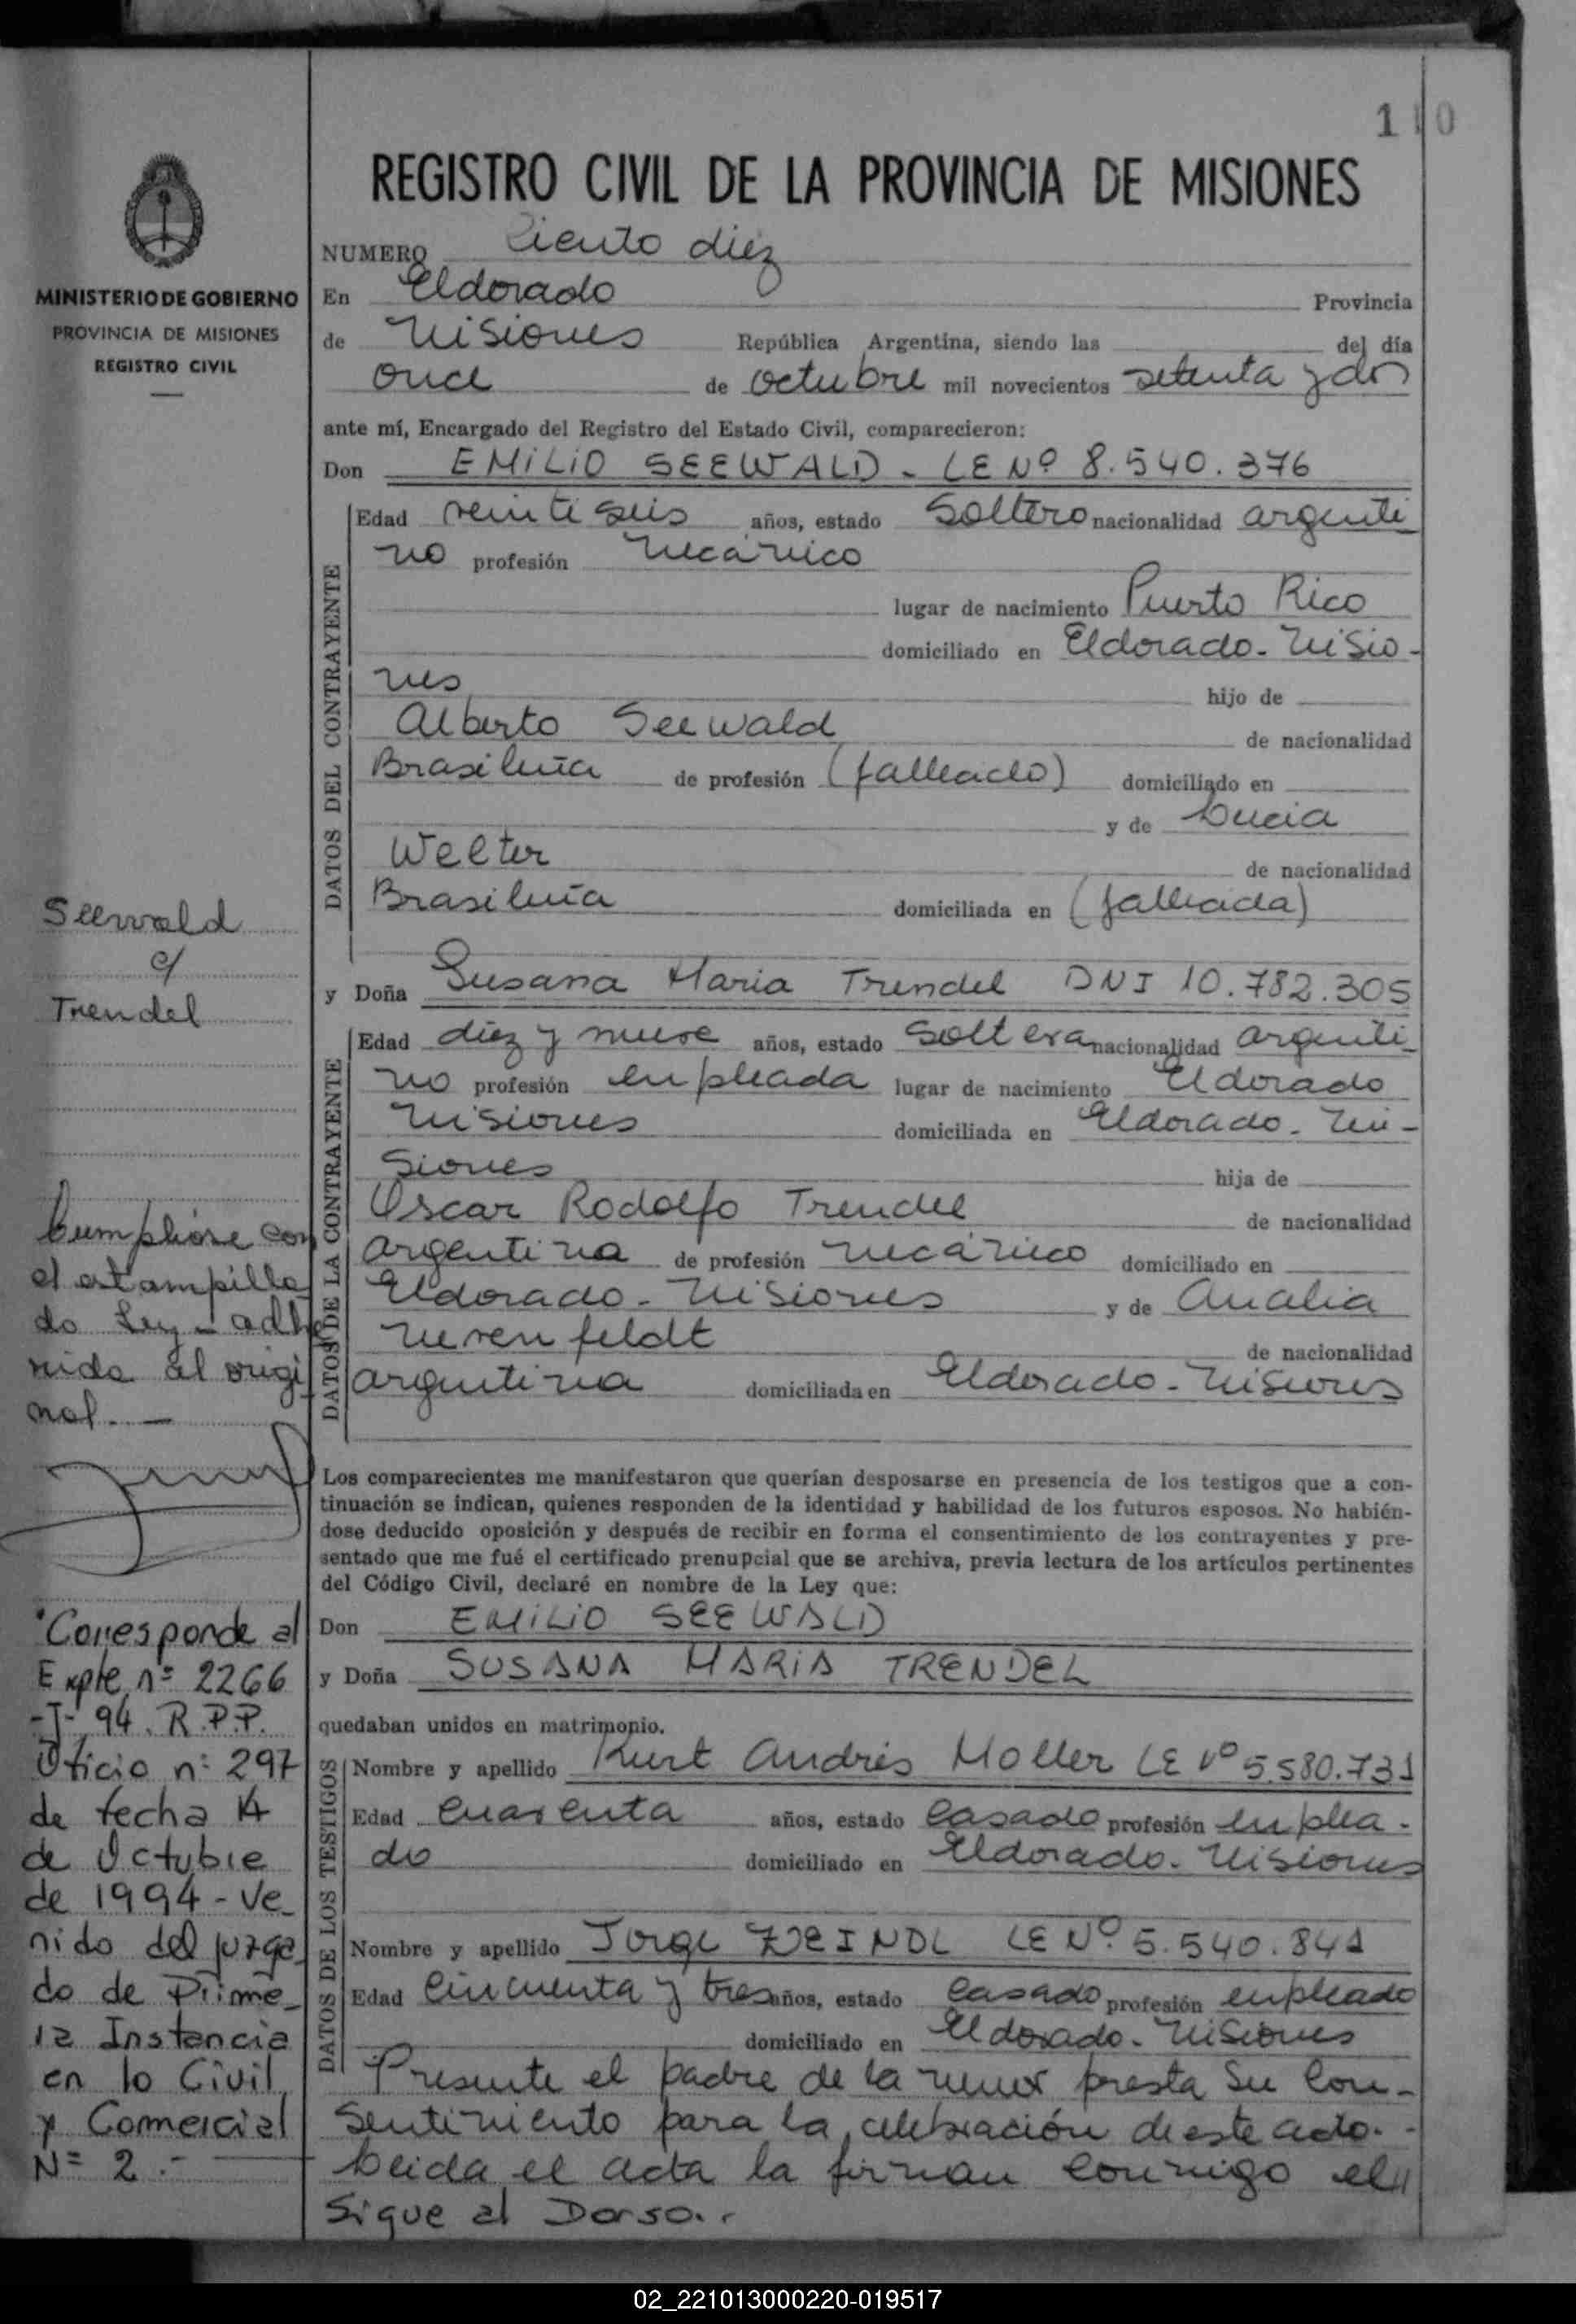 110
REGISTRO CIVIL DE LA PROVINCIA DE MISIONES
MINISTERIO DE GOBIERNO
PROVINCIA DE MISIONES
REGISTRO CIVIL
NUMERO Ciento diez
En Eldorado Provincia
de Misiones República Argentina, siendo las del día
once de octubre mil novecientos setenta y dos
ante mí, Encargado del Registro del Estado Civil, comparecieron:
Don EMILIO SEEWALD - LE Nº 8.540.376
DATOS DEL CONTRAYENTE
Edad veinti seis años, estado Soltero nacionalidad argenti
no profesión mecánico
lugar de nacimiento Puerto Rico
domiciliado en Eldorado - Misio-
nes hijo de
Alberto Seewald de nacionalidad
Brasileña de profesión (fallecido) domiciliado en
y de Lucia
Welter de nacionalidad
Brasileña domiciliada en (fallecida)
y Doña Susana Maria Trendel DNI 10.782.305
DATOS DE LA CONTRAYENTE
Edad diez y nueve años, estado Soltera nacionalidad argenti
no profesión empleada lugar de nacimiento Eldorado
Misiones domiciliada en Eldorado - Mi-
siones hija de
Oscar Rodolfo Trendel de nacionalidad
argentina de profesión mecánico domiciliado en
Eldorado - Misiones y de Analia
Neven feldt de nacionalidad
argentina domiciliada en Eldorado - Misiones
Los comparecientes me manifestaron que querían desposarse en presencia de los testigos que a con-
tinuación se indican, quienes responden de la identidad y habilidad de los futuros esposos. No habién-
dose deducido oposición y después de recibir en forma el consentimiento de los contrayentes y pre-
sentado que me fué el certificado prenupcial que se archiva, previa lectura de los artículos pertinentes
del Código Civil, declaré en nombre de la Ley que:
Don EMILIO SEEWALD
y Doña SUSANA MARIA TRENDEL
quedaban unidos en matrimonio.
DATOS DE LOS TESTIGOS
Nombre y apellido Kurt Andrés Moller LE Nº 5.580.731
Edad Cuarenta años, estado Casado profesión emplea-
do domiciliado en Eldorado - Misiones
Nombre y apellido Jorge WEINDL LE Nº 5.540.841
Edad Cincuenta y tres años, estado Casado profesión empleado
domiciliado en Eldorado - Misiones
Presente el padre de la menor presta su con-
sentimiento para la celebración de este acto.-
Leida el acta la firman conmigo el//
Sigue al Dorso..
Seewald
c/
Trendel
Cumplióse con
el estampilla
do Ley - adhe
rida al origi
nal.-
"Corresponde al
Expte nº 2266
-J- 94. R.P.P.
Oficio nº 297
de fecha 14
de Octubre
de 1994 - Ve_
nido del juzga_
do de Prime_
ra Instancia
en lo Civil
y Comercial
Nº 2.-
02_221013000220-019517